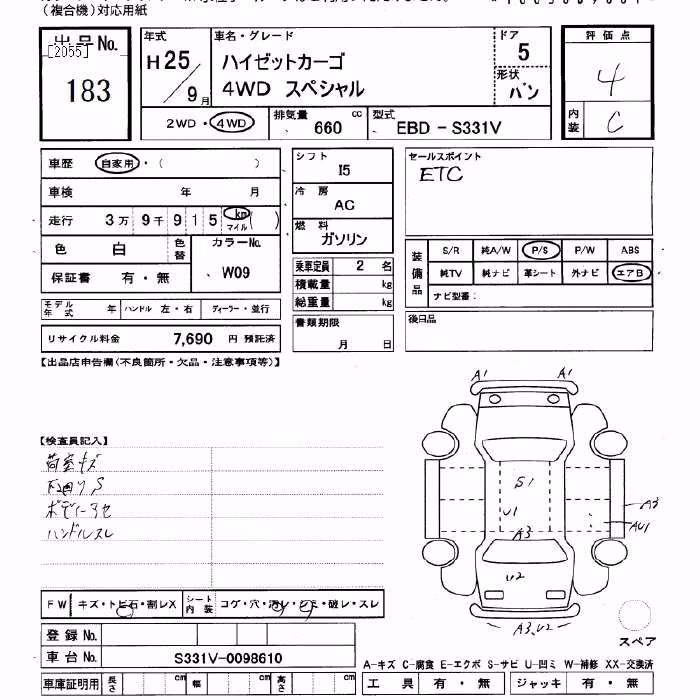 (複合機)対応用紙
出品No.
[2055]
183
年式
H25/9月
車名・グレード
ハイゼットカーゴ
4WD スペシャル
ドア
5
形状
バン
評価点
4
内装
C
2WD・4WD
排気量
660 cc
型式
EBD-S331V
車歴 自家用・( )
車検 年 月
走行 3万9千915 km マイル ( )
色 白 色替
カラーNo.
W09
保証書 有・無
モデル年式 年 ハンドル 左・右 ディーラー・並行
リサイクル料金 7,690 円 預託済
シフト
I5
冷房
AC
燃料
ガソリン
乗車定員 2 名
積載量 kg
総重量 kg
書類期限
月 日
セールスポイント
ETC
装備品
S/R 純A/W P/S P/W ABS
純TV 純ナビ 革シート 外ナビ エアB
ナビ型番:
後日品
【出品店申告欄(不良箇所・欠品・注意事項等)】
【検査員記入】
荷室キズ
下廻りS
ボディーヨセ
ハンドルスレ
A1 A1
S1
U1
A3
A3
AU1
U2
A3,U2
スペア
FW キズ・トビ石・割レX シート内装 コゲ・穴・汚レ・シミ・破レ・スレ
登録No.
車台No. S331V-0098610
車庫証明用 長さ cm 幅 cm 高さ cm
A-キズ C-腐食 E-エクボ S-サビ U-凹ミ W-補修 XX-交換済
工具 有・無 ジャッキ 有・無